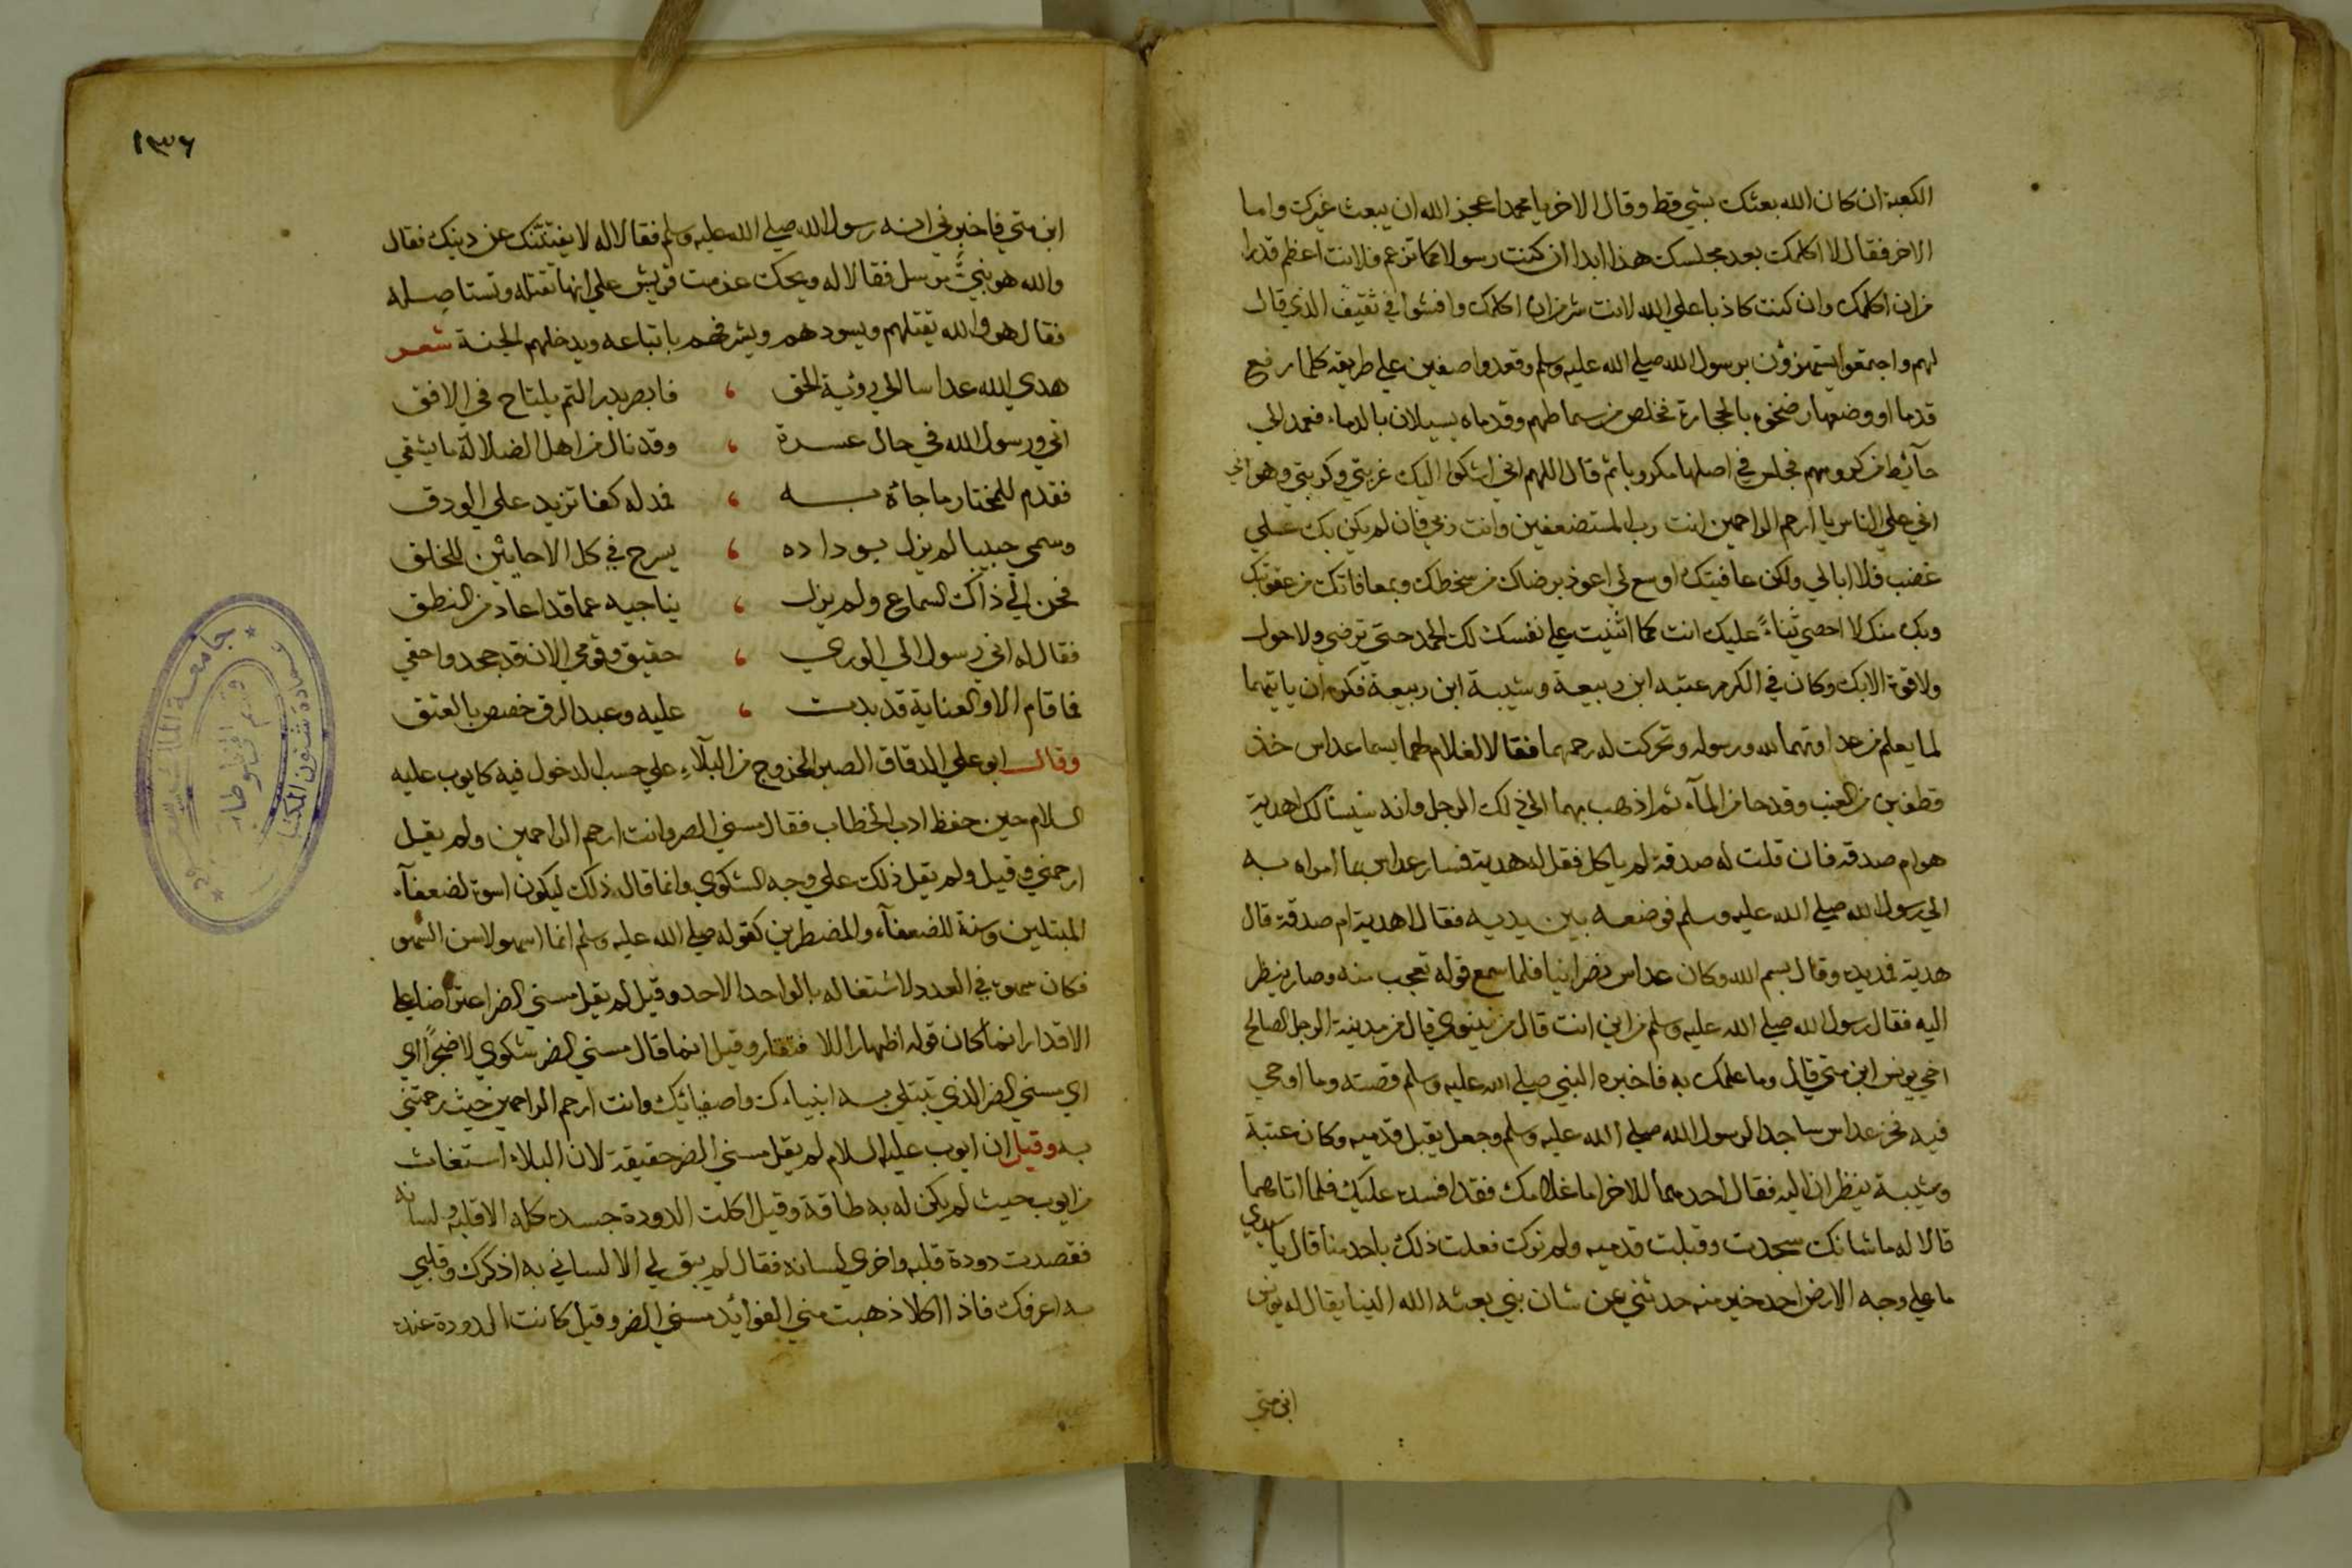 الكعبة ان كان الله بعثك بشي قط وقال الاخر يا محمد اعجز الله ان يبعث غيرك واما
الاخر فقال لا اكلمك بعد مجلسك هذا ابدا ان كنت رسولا كما تزعم فلانت اعظم قدرا
من ان اكلمك وان كنت كاذبا علي الله لانت شر من ان اكلمك وافشوا في ثقيف الذي قال
لهم واجتمعوا يستهزؤن برسول الله صلي الله عليه وسلم وقعدوا صفين علي طريقه كلما رفع
قدما او وضعها رضخوه بالحجارة فخلص من سماطهم وقدماه يسيلان بالدماء فعمد الي
حآئط من كرومهم فجلس في اصلها مكروبا ثم قال اللهم اني اشكوا اليك غربتي وكربتي وهواني
اني علي الناس يا ارحم الراحمين انت رب المستضعفين وانت ربي فان لم يكن بك علي
غضب فلا ابالي ولكن عافيتك اوسع لي اعوذ برضاك من سخطك وبمعافاتك من عقوبتك
وبك منك لا احصي ثناءً عليك انت كما اثنيت علي نفسك لك الحمد حتي ترضي ولا حول
ولا قوة الا بك وكان في الكرم عتبه ابن ربيعة وشيبة ابن ربيعة فكره ان ياتيهما
لما يعلم من عداوتهما لله ورسوله وتحركت له رحمهما فقالا لغلام لهما يسما عداس خذ
قطفين من العنب وقدحا من المآء ثم اذهب بهما الي ذلك الرجل وانه سيسالك اهدية
هو ام صدقه فان قلت له صدقة لم ياكل فقل له هدية فسار عداس بما امراه به
الي رسول الله صلي الله عليه وسلم فوضعه بين يديه فقال اهدية ام صدقة قال
هدية فمد يده وقال بسم الله وكان عداس نصرانيا فلما سمع قوله تعجب منه وصار ينظر
اليه فقال رسول الله صلي الله عليه وسلم من اين انت قال من نينوي قال من مدينة الرجل الصالح
اخي يونس ابن متي قال وما علمك به فاخبره النبي صلي الله عليه وسلم قصته وما اوحي
فيه فخر عداس ساجدا لرسول الله صلي الله عليه وسلم وجعل يقبل قدميه وكان عتبة
وشيبة ينظران اليه فقال احدهما للاخر اما غلامك فقد افسده عليك فلما اتاهما
قالا له ما شانك سجدت وقبلت قدميه ولم نرك فعلت ذلك باحد منا قال يا سيدي
ما علي وجه الارض احد خير منه حدثني عن شان نبي بعثه الله الينا يقال له يونس
ابن متي
١٣٦
ابن متي فاخبرني انه رسول الله صلي الله عليه وسلم فقالا له لا يفتنّنك عن دينك فقال
والله هو نبيٌ مرسل فقالا له ويحك عزمت قريش علي انها تقتله وتستاصله
فقال هو والله يقتلهم ويسودهم ويشرفهم باتباعه ويدخلهم الجنة شعر
هدي الله عداسا الي رؤية الحق ، فابصر بدر التم يلتاح في الافق
اتي ورسول الله في حال عسرة ، وقد نال من اهل الضلالة ما يشقي
فقدم للمختار ما جاءه به ، فمد له كفا تزيد علي الودق
وسمي حبيبا لم يزل بوداده ، يسرح في كل الاحايين للخلق
فحن الي ذاك السماع ولم يزل ، يناجيه عما قد اعاد من النطق
فقال له اني رسول الي الوري ، حقيق وقومي الان قد جحدوا حقي
فما قام الا والعناية قد بدت ، عليه وعبد الرق خصص بالعتق
وقال ابو علي الدقاق الصبر الخروج من البلآء علي حسب الدخول فيه كايوب عليه
السلام حين حفظ ادب الخطاب فقال مسني الضر وانت ارحم الراحمين ولم يقل
ارحمني وقيل ولم يقل ذلك علي وجه الشكوي وانما قال ذلك ليكون اسوة لضعفآء
المبتلين وسنة للضعفآء والمضطرين كقوله صلي الله عليه وسلم انما اسهو لاسن السهو
فكان سهوه في العدد لاشتغاله بالواحد الاحد وقيل لم يقل مسني الضر اعتراضا علي
الاقدار انما كان قوله اظهارا للافتقار وقيل انما قال مسني الضر شكوي لا ضجرًا اي
اي مسني الضر الذي تبتلي به انبياءك واصفيائك وانت ارحم الراحمين حيث رحمتني
به وقيل ان ايوب عليه السلام لم يقل مسني الضر حقيقة لان البلاء استغاث
من ايوب حيث لم يكن له به طاقة وقيل اكلت الدودة جسده كله الا قلبه ولسانه
فقصدت دودة قلبه واخري لسانه فقال لم يبق لي الا لساني به اذكرك وقلبي
به اعرفك فاذا اكلا ذهبت مني الفوائد مسني الضر وقيل كانت الدودة عنده
جامعة الملك سعود
عمادة شئون المكتبات
قسم المخطوطات